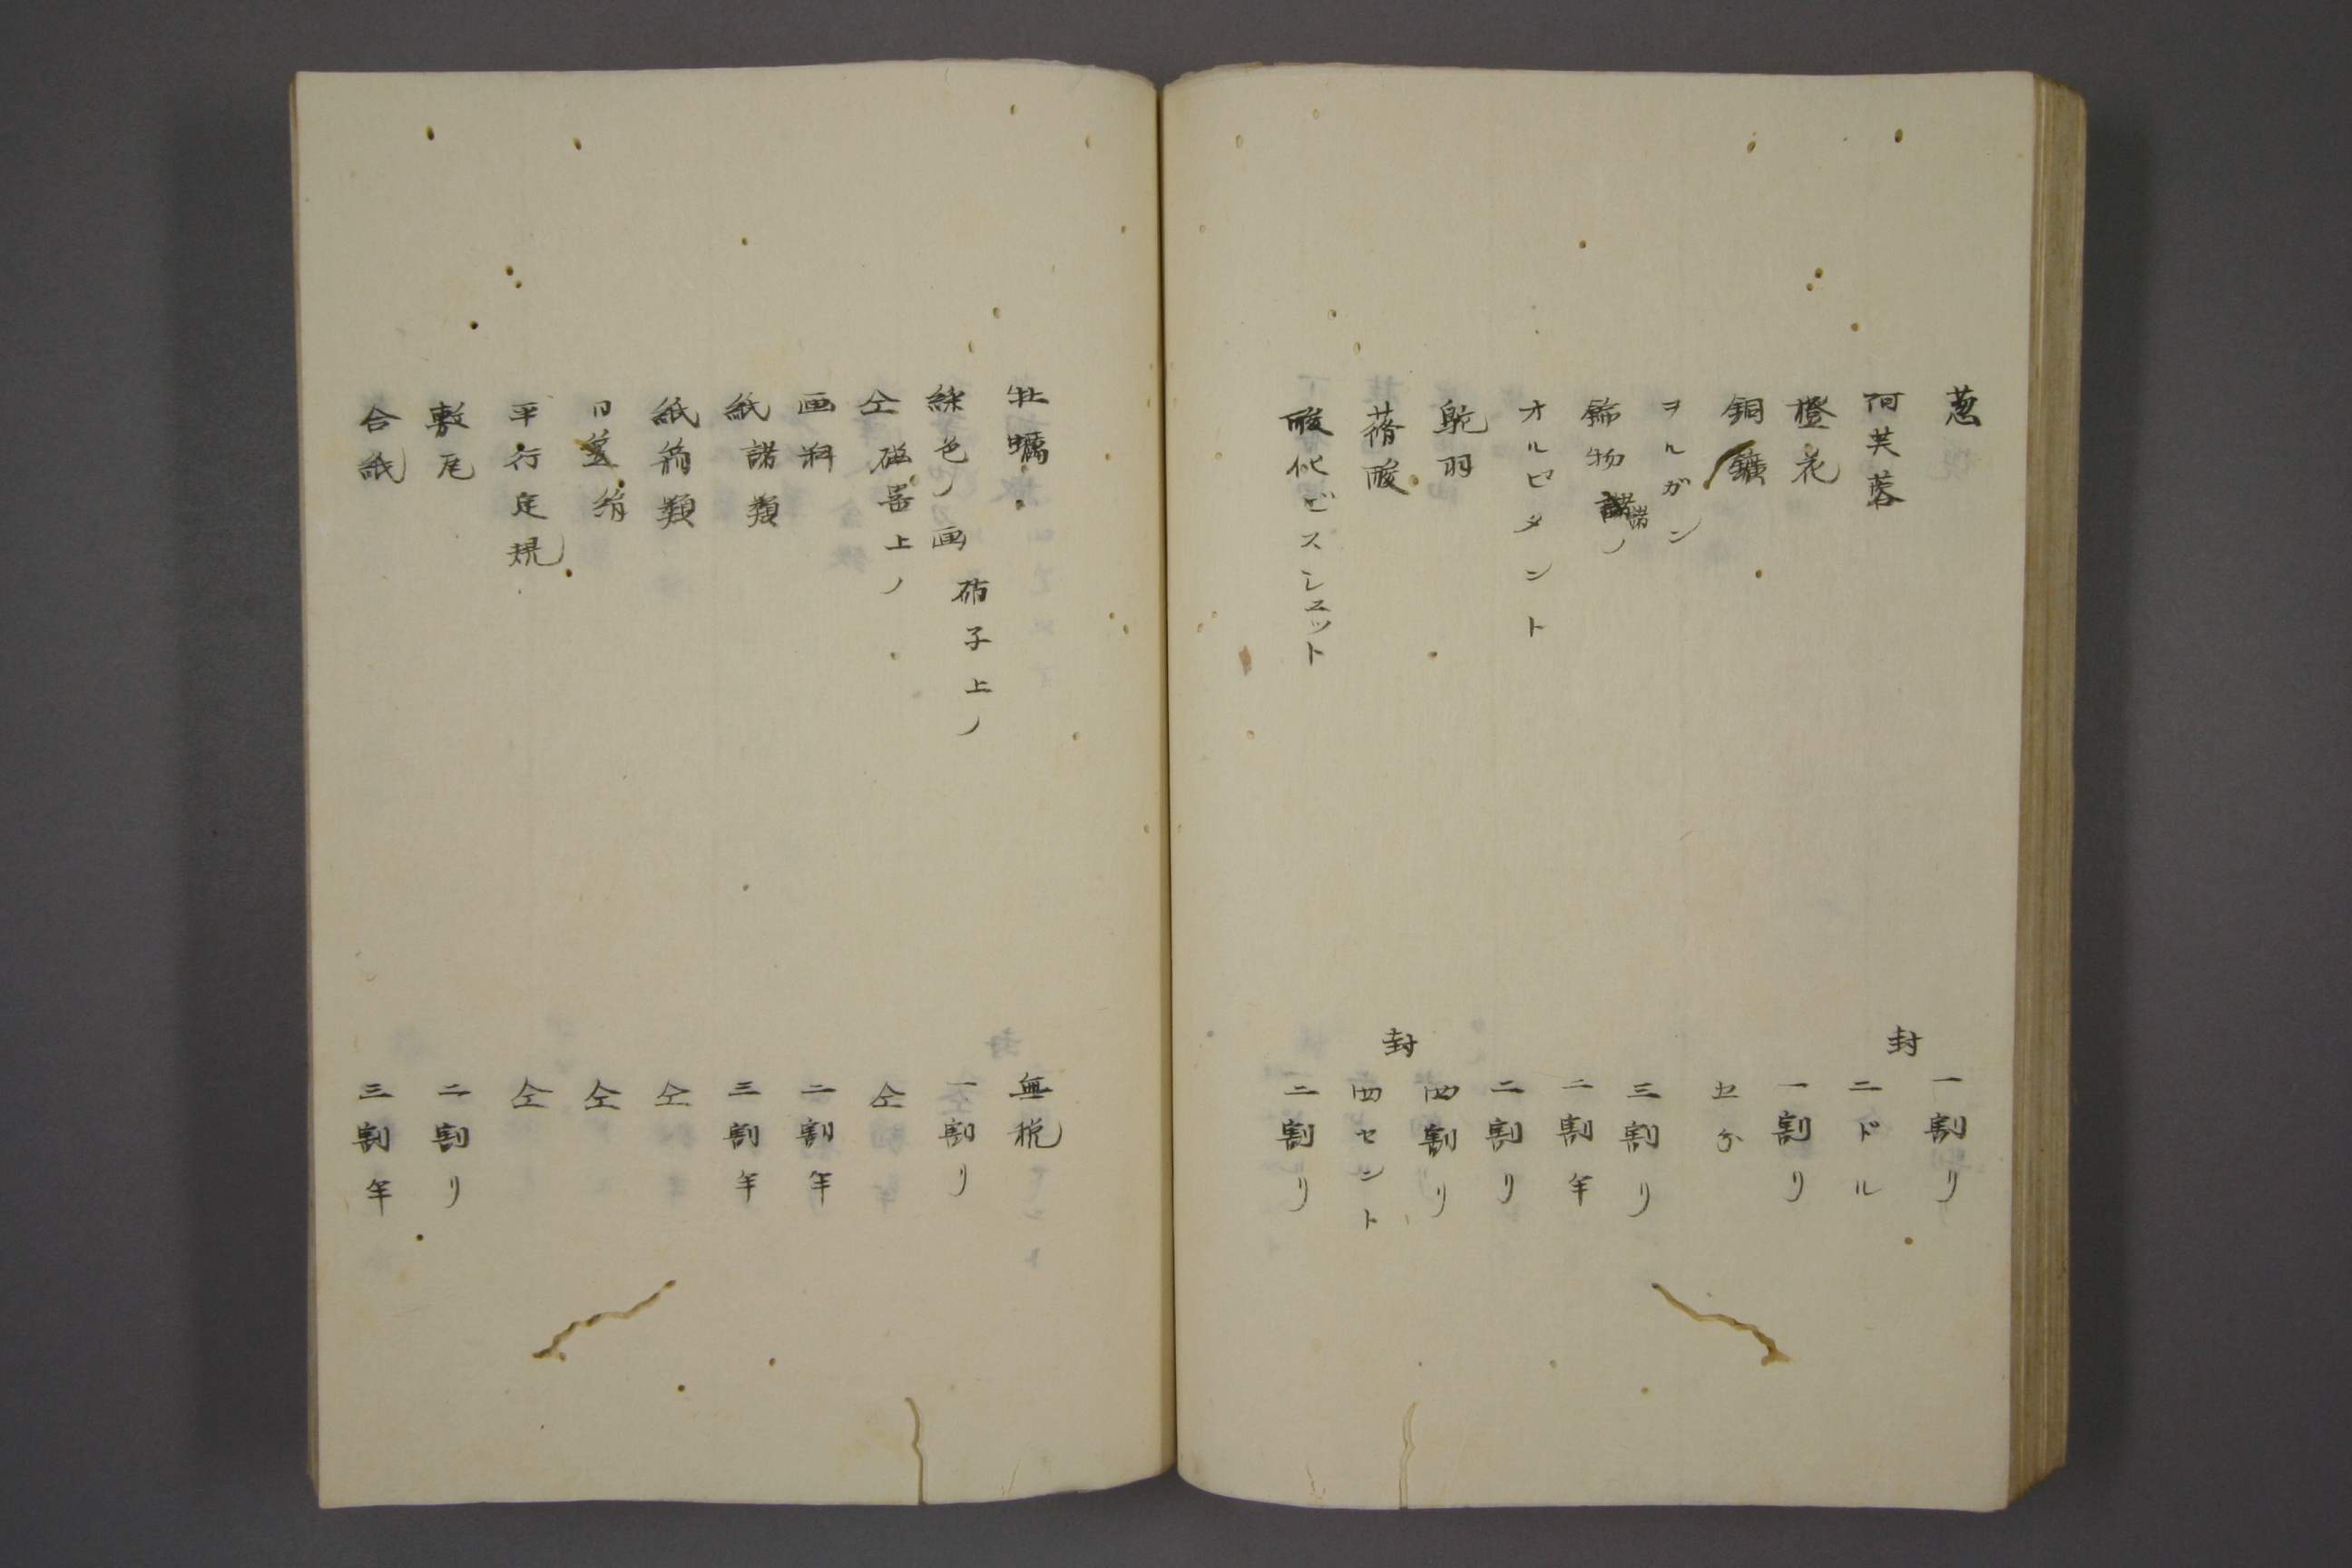 葱 一割リ
阿芙蓉 封 二ドル
橙花 一割リ
銅鑛 五分
ヲルガン 三割リ
飾物諸ノ 二割半
オルピメント 二割リ
鴕羽 四割リ
蓚酸 封 四セント
酸化ビスシュット 二割リ
牡蠣 無税
綵色ノ画 硝子上ノ 一割リ
仝 磁器上ノ 仝
画料 二割半
紙諸類 三割半
紙筒類 仝
日蓋 絹 仝
平行定規 仝
敷瓦 二割リ
合紙 三割半